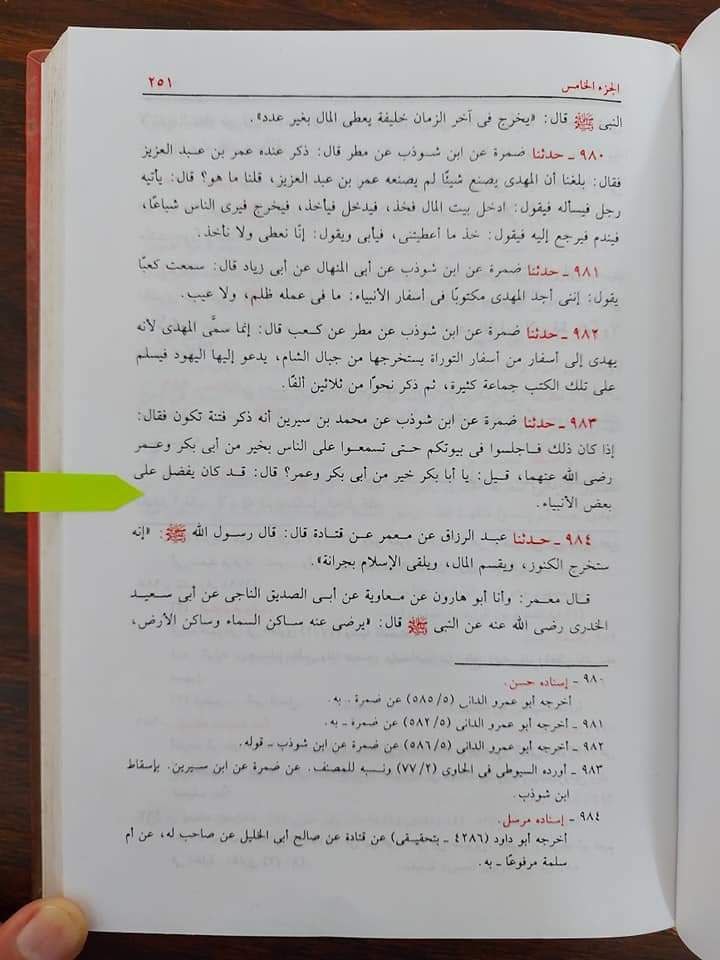 الجزء الخامس ٢٥١
النبى ﷺ قال: «يخرج فى آخر الزمان خليفة يعطى المال بغير عدد».
٩٨٠ ـ حدثنا ضمرة عن ابن شوذب عن مطر قال: ذكر عنده عمر بن عبد العزيز
فقال: بلغنا أن المهدى يصنع شيئًا لم يصنعه عمر بن عبد العزيز، قلنا ما هو؟ قال: يأتيه
رجل فيسأله فيقول: ادخل بيت المال فخذ، فيدخل فيأخذ، فيخرج فيرى الناس شباعًا،
فيندم فيرجع إليه فيقول: خذ ما أعطيتنى، فيأبى ويقول: إنَّا نعطى ولا نأخذ.
٩٨١ ـ حدثنا ضمرة عن ابن شوذب عن أبى المنهال عن أبى زياد قال: سمعت كعبًا
يقول: إننى أجد المهدى مكتوبًا فى أسفار الأنبياء: ما فى عمله ظلم، ولا عيب.
٩٨٢ ـ حدثنا ضمرة عن ابن شوذب عن مطر عن كعب قال: إنما سمَّى المهدى لأنه
يهدى إلى أسفار من أسفار التوراة يستخرجها من جبال الشام، يدعو إليها اليهود فيسلم
على تلك الكتب جماعة كثيرة، ثم ذكر نحوًا من ثلاثين ألفًا.
٩٨٣ ـ حدثنا ضمرة عن ابن شوذب عن محمد بن سيرين أنه ذكر فتنة تكون فقال:
إذا كان ذلك فاجلسوا فى بيوتكم حتى تسمعوا على الناس بخير من أبى بكر وعمر
رضى الله عنهما، قيل: يا أبا بكر خير من أبى بكر وعمر؟ قال: قد كان يفضل على
بعض الأنبياء.
٩٨٤ ـ حدثنا عبد الرزاق عن معمر عن قتادة قال: قال رسول الله ﷺ: «إنه
ستخرج الكنوز، ويقسم المال، ويلقى الإسلام بجرانة».
قال معمر: وأنا أبو هارون عن معاوية عن أبى الصديق الناجى عن أبى سعيد
الخدرى رضى الله عنه عن النبى ﷺ قال: «يرضى عنه ساكن السماء وساكن الأرض،
٩٨٠ ـ إسناده حسن.
أخرجه أبو عمرو الدانى (٥/٥٨٥) عن ضمرة . به.
٩٨١ ـ أخرجه أبو عمرو الدانى (٥/٥٨٢) عن ضمرة ـ به.
٩٨٢ ـ أخرجه أبو عمرو الدانى (٥/٥٨٦) عن ضمرة عن ابن شوذب ـ قوله.
٩٨٣ ـ أورده السيوطى فى الحاوى (٢/٧٧) ونسبه للمصنف. عن ضمرة عن ابن سيرين. بإسقاط
ابن شوذب.
٩٨٤ ـ إسناده مرسل.
أخرجه أبو داود (٤٢٨٦ ـ بتحقيقى) عن قتادة عن صالح أبى الخليل عن صاحب له، عن أم
سلمة مرفوعًا ـ به.